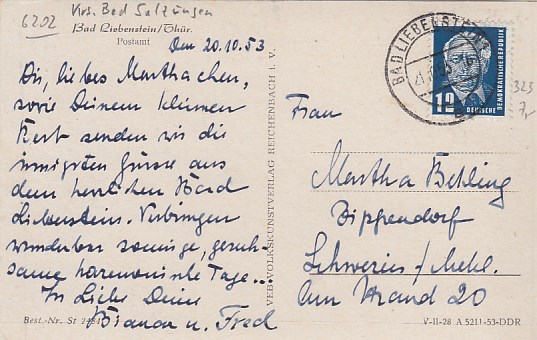 6202
Krs. Bad Salzungen
Bad Liebenstein/Thür.
Postamt
Den 20.10.53
Dir, liebes Marthachen,
sowie Deinem kleinen
Rest senden wir die
innigsten Grüsse aus
dem herrlichen Bad
Liebenstein. Verbringen
wunderbar sonnige, geruh-
same harmonische Tage...
In Liebe Deine
u. Fred
Best.-Nr. St
VEB VOLKSKUNSTVERLAG REICHENBACH I. V.
BAD LIEBENSTEIN
12
DEUTSCHE
DEMOKRATISCHE REPUBLIK
323
7,-
Frau
Martha Behling
Zippendorf
Schwerin/Meckl.
Am Strand 20
V-II-28 A 5211-53-DDR